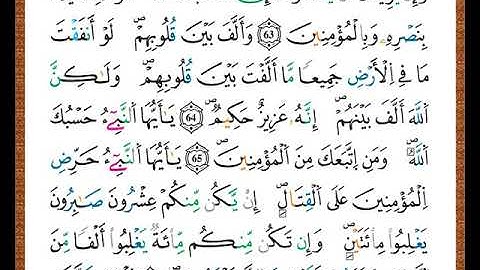 بِنَصْرِهِۦ وَبِالْمُؤْمِنِينَ 63 وَأَلَّفَ بَيْنَ قُلُوبِهِمْۖ لَوْ أَنفَقْتَ
مَا فِے اِلْأَرْضِ جَمِيعاً مَّا أَلَّفْتَ بَيْنَ قُلُوبِهِمْۖ وَلَٰكِنَّ
اَللَّهَ أَلَّفَ بَيْنَهُمْۖ إِنَّهُۥ عَزِيزٌ حَكِيمٌۖ 64 يَٰأَيُّهَا اَلنَّبِےٓءُ حَسْبُكَ
اَللَّهُۖ وَمَنِ اِتَّبَعَكَ مِنَ اَلْمُؤْمِنِينَۖ 65 يَٰأَيُّهَا اَلنَّبِےٓءُ حَرِّضِ
اِلْمُؤْمِنِينَ عَلَى اَلْقِتَالِۖ إِنْ يَّكُن مِّنكُمْ عِشْرُونَ صَٰبِرُونَ
يَغْلِبُواْ مِاْئَتَيْنِۖ وَإِن تَكُن مِّنكُم مِّاْئَةٌ يَغْلِبُواْ أَلْفاً مِّنَ